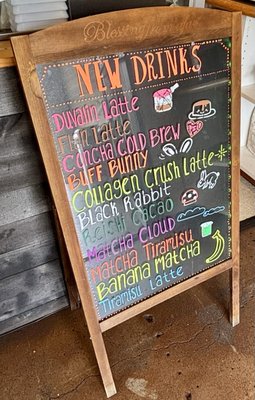 NEW DRINKS
Duvalin Latte
Flan Latte
Concha Cold Brew
Buff Bunny
Collagen Crush Latte
Black Rabbit
Reishi Cacao
Matcha Cloud
Matcha Tiramisu
Banana Matcha
Tiramisu Latte